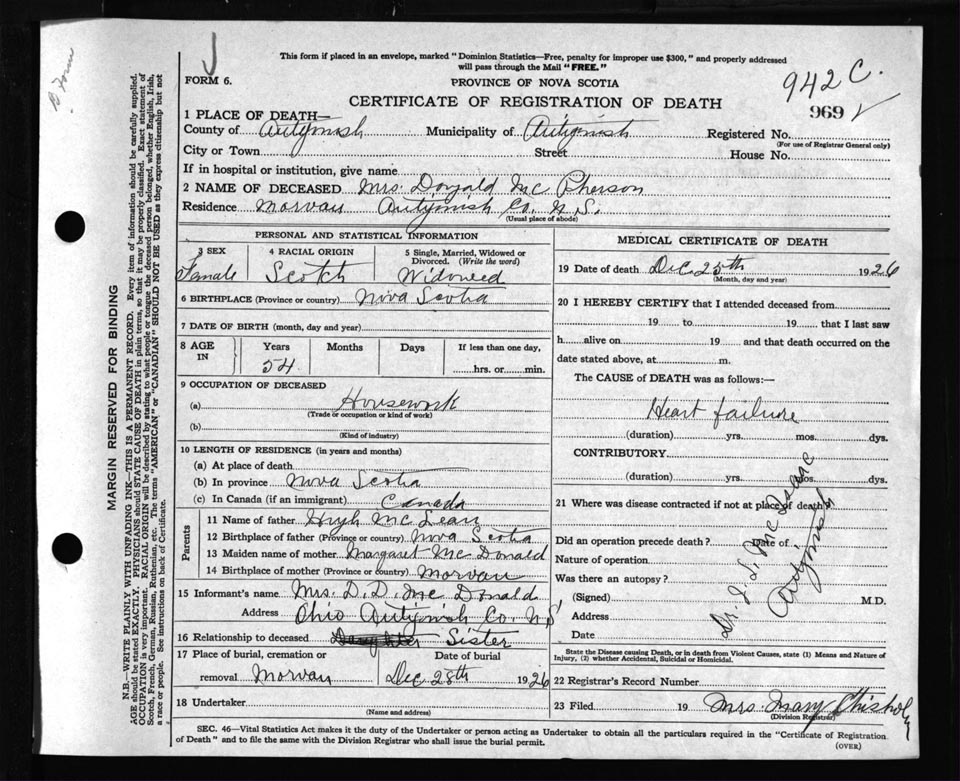 B Form
This form if placed in an envelope, marked "Dominion Statistics—Free, penalty for improper use $300," and properly addressed
will pass through the Mail "FREE."
FORM 6.
PROVINCE OF NOVA SCOTIA
942 C.
CERTIFICATE OF REGISTRATION OF DEATH
969
1 PLACE OF DEATH—
County of Antigonish Municipality of Antigonish Registered No.
(For use of Registrar General only)
City or Town Street House No.
If in hospital or institution, give name
2 NAME OF DECEASED Mrs. Donald Mc Pherson
Residence Morvan Antigonish Co. N.S.
(Usual place of abode)
PERSONAL AND STATISTICAL INFORMATION
3 SEX 4 RACIAL ORIGIN 5 Single, Married, Widowed or
Divorced. (Write the word)
Female Scotch Widowed
6 BIRTHPLACE (Province or country) Nova Scotia
7 DATE OF BIRTH (month, day and year)
8 AGE IN Years Months Days If less than one day,
54 hrs. or min.
9 OCCUPATION OF DECEASED
(a) Housework
(Trade or occupation or kind of work)
(b)
(Kind of industry)
10 LENGTH OF RESIDENCE (in years and months)
(a) At place of death
(b) In province Nova Scotia
(c) In Canada (if an immigrant) Canada
Parents
11 Name of father Hugh Mc Lean
12 Birthplace of father (Province or country) Nova Scotia
13 Maiden name of mother Margaret Mc Donald
14 Birthplace of mother (Province or country) Morvan
15 Informant's name Mrs. D. D. Mc Donald
Address Ohio Antigonish Co. N.S.
16 Relationship to deceased Daughter Sister
17 Place of burial, cremation or Date of burial
removal Morvan Dec 28th 1926
18 Undertaker
(Name and address)
MEDICAL CERTIFICATE OF DEATH
19 Date of death Dec 25th 1926
(Month, day and year)
20 I HEREBY CERTIFY that I attended deceased from
19 to 19 that I last saw
h alive on 19 and that death occurred on the
date stated above, at m.
The CAUSE of DEATH was as follows:—
Heart failure
(duration) yrs. mos. dys.
CONTRIBUTORY
(duration) yrs. mos. dys.
21 Where was disease contracted if not at place of death?
Did an operation precede death? Date of
Nature of operation
Was there an autopsy?
(Signed) M.D.
Address
Date
Dr. J. S. Mc Isaac
Antigonish
State the Disease causing Death, or in death from Violent Causes, state (1) Means and Nature of
Injury, (2) whether Accidental, Suicidal or Homicidal.
22 Registrar's Record Number
23 Filed 19 Mrs. Mary Chisholm
(Division Registrar)
SEC. 46—Vital Statistics Act makes it the duty of the Undertaker or person acting as Undertaker to obtain all the particulars required in the "Certificate of Registration
of Death" and to file the same with the Division Registrar who shall issue the burial permit.
(OVER)
MARGIN RESERVED FOR BINDING
N.B.—WRITE PLAINLY WITH UNFADING INK—THIS IS A PERMANENT RECORD. Every item of information should be carefully supplied.
AGE should be stated EXACTLY. PHYSICIANS should STATE CAUSE OF DEATH in plain terms, so that it may be properly classified. Exact statement of
OCCUPATION is very important. RACIAL ORIGIN will be described by stating to what people or tongue the deceased person belonged, whether English, Irish,
Scotch, French, German, Russian, Ruthenian, etc. The terms "AMERICAN" or "CANADIAN" SHOULD NOT BE USED as they express citizenship but not
a race or people. See instructions on back of Certificate.